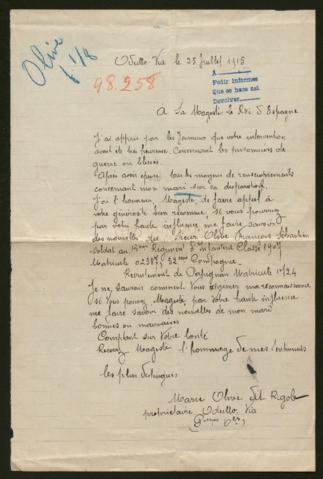 Olive
6 1/8
98.258
Odello-Via le 25 Juillet 1915
A
Pedir informes
Que se hace así
Devolver
A Sa Majesté le Roi d'Espagne
J'ai appris par les Journaux que votre intervention
avait été très heureuse. Concernant les prisonniers de
guerre ou blessés.
Après avoir épuisé tous les moyens de renseignements
concernant mon mari sur sa disparition
J'ai l'honneur, Majesté, de faire appel à
votre générosité bien reconnue. Si vous pouviez
par votre haute influence me faire savoir
des nouvelles de Olive François Sébastien
Soldat au Régiment d'infanterie Classe 1907
Matricule 02387, 32eme Compagnie.
Recrutement de Perpignan Matricule 1724
Je ne saurais comment Vous exprimer ma reconnaissance
si Vous pouvez Majesté, par Votre haute influence
me faire savoir des nouvelles de mon mari
bonnes ou mauvaises
Comptant sur Votre bonté
Recevez Majesté l'hommage de mes sentiments
les plus distingués
Marie Olive dit Rigole
propriétaire Odello Via